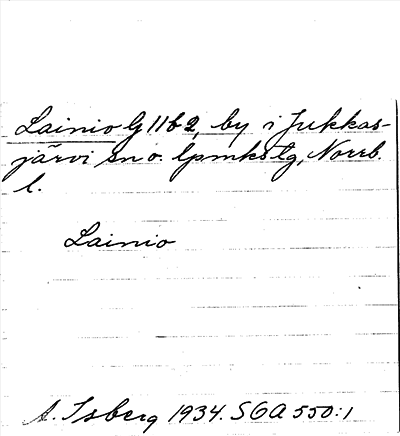 Lainio G 11 b 2, by i Jukkas-
järvi sn o. lpmks tg, Norrb.
l.
Lainio
A. Isberg 1934. SOA 550:1